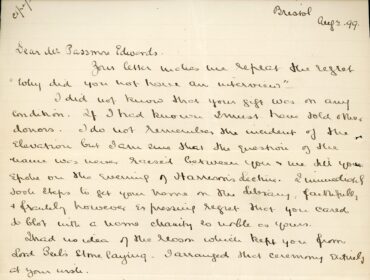 Bristol
Aug 2. 99
Dear Mr Passmore Edwards.
Your letter makes me repeat the regret
"Why did you not have an interview"
I did not know that your gift was on any
condition. If I had known I must have told other
donors. I do not remember the incident of the
Elevation but I am sure that the question of the
name was never raised between you & me till you
spoke on the evening of Harrison's lecture. I immediately
took steps to get your name on the library, faithfully
& frankly however expressing regret that you cared
to blot with a name charity so noble as yours.
I had no idea of the reason which kept you from
Lord Peel's Stone laying. I arranged that ceremony entirely
at your wish.